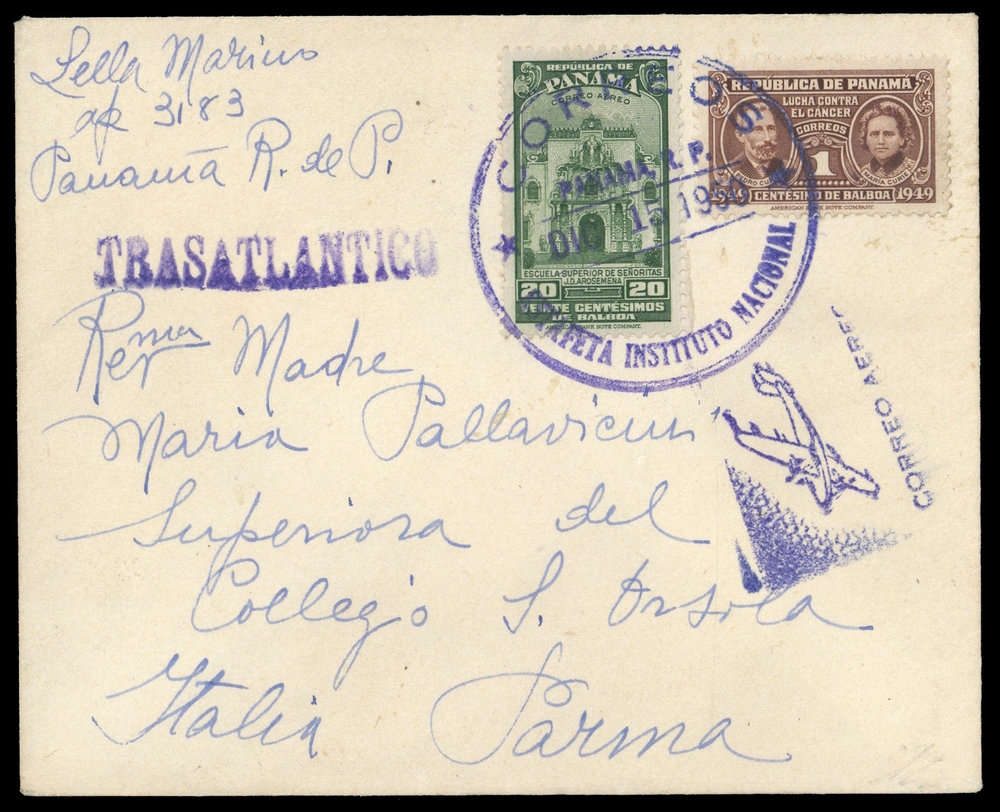 Lella Marino
ap 3183
Panamá R. de P.
TRASATLANTICO
REPÚBLICA DE
PANAMÁ
CORREO AEREO
ESCUELA SUPERIOR DE SEÑORITAS
J.D. AROSEMENA
20 20
VEINTE CENTÉSIMOS
DE BALBOA
AMERICAN BANK NOTE COMPANY.
REPÚBLICA DE PANAMÁ
LUCHA CONTRA
EL CÁNCER
CORREOS
1
PEDRO CURIE
MARIA CURIE
1949 CENTÉSIMO DE BALBOA 1949
AMERICAN BANK NOTE COMPANY.
CORREOS
PANAMA, R. P.
DIC 15 19
ESTAFETA INSTITUTO NACIONAL
CORREO AEREO
Revma Madre
Maria Pallavicini
Superiora del
Collegio S. Orsola
Italia Parma